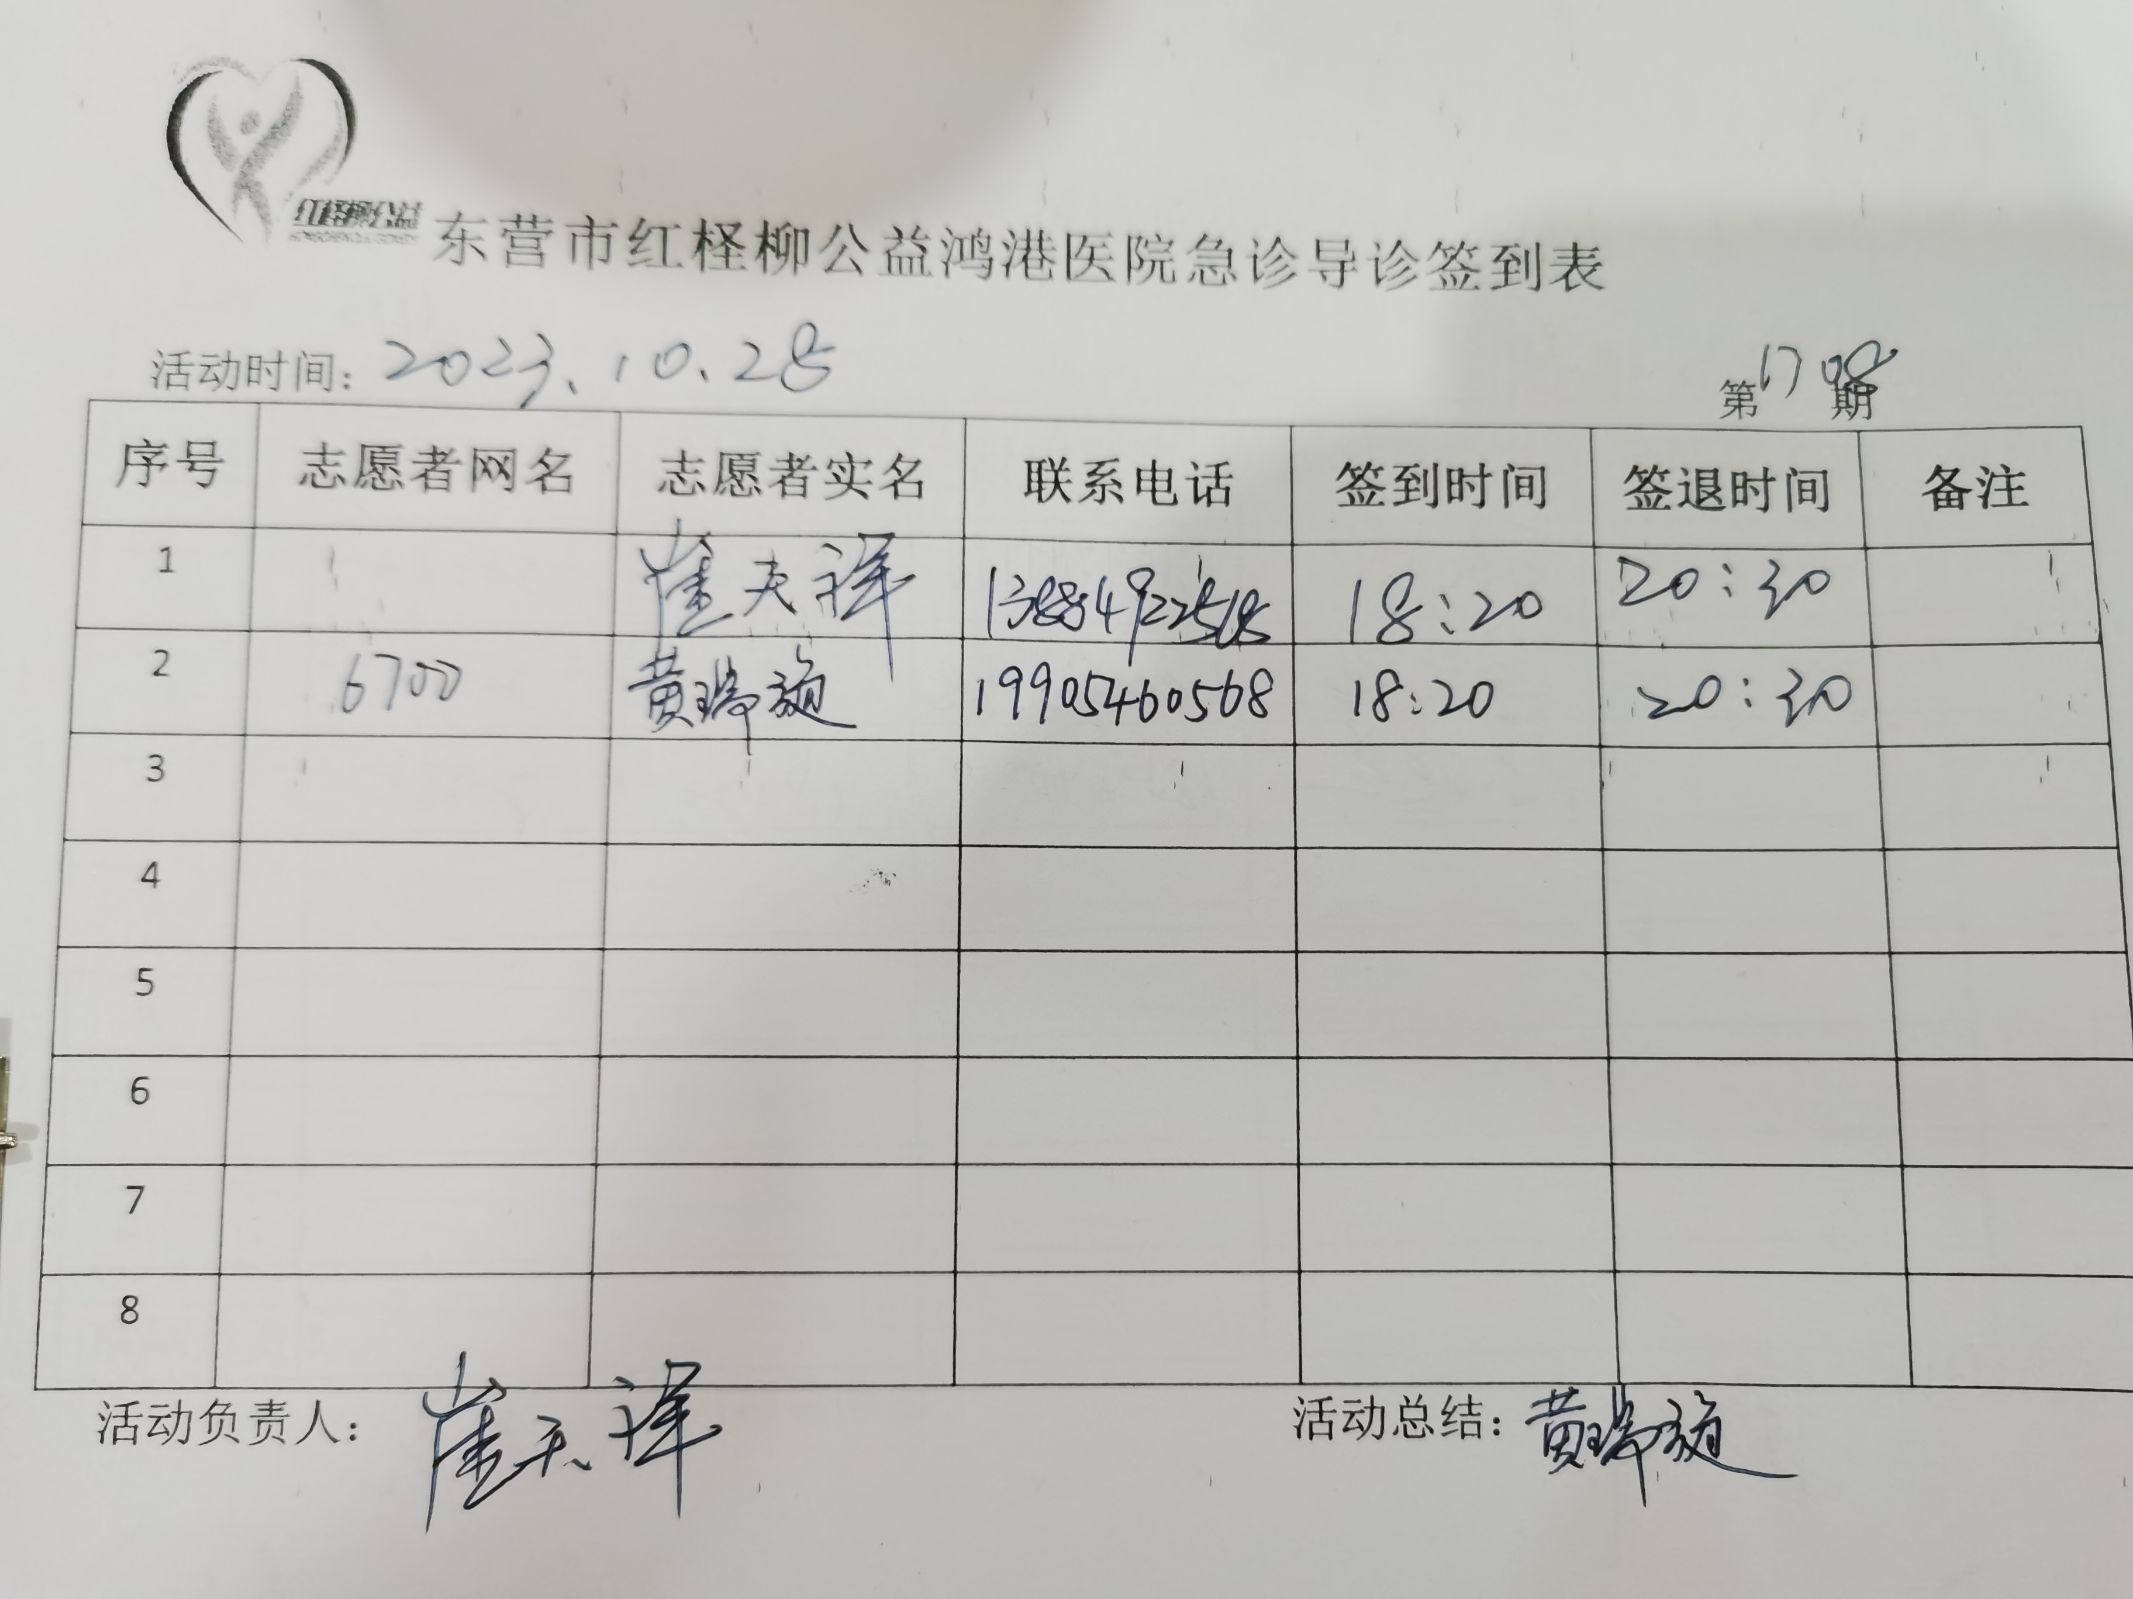 红柽柳公益
东营市红柽柳公益鸿港医院急诊导诊签到表
活动时间：2023.10.28 第1708期
序号 志愿者网名 志愿者实名 联系电话 签到时间 签退时间 备注
1 崔夫祥 18:20 20:30
2 6700 黄瑞旋 19905460568 18:20 20:30
3
4
5
6
7
8
活动负责人：崔夫祥 活动总结：黄瑞旋